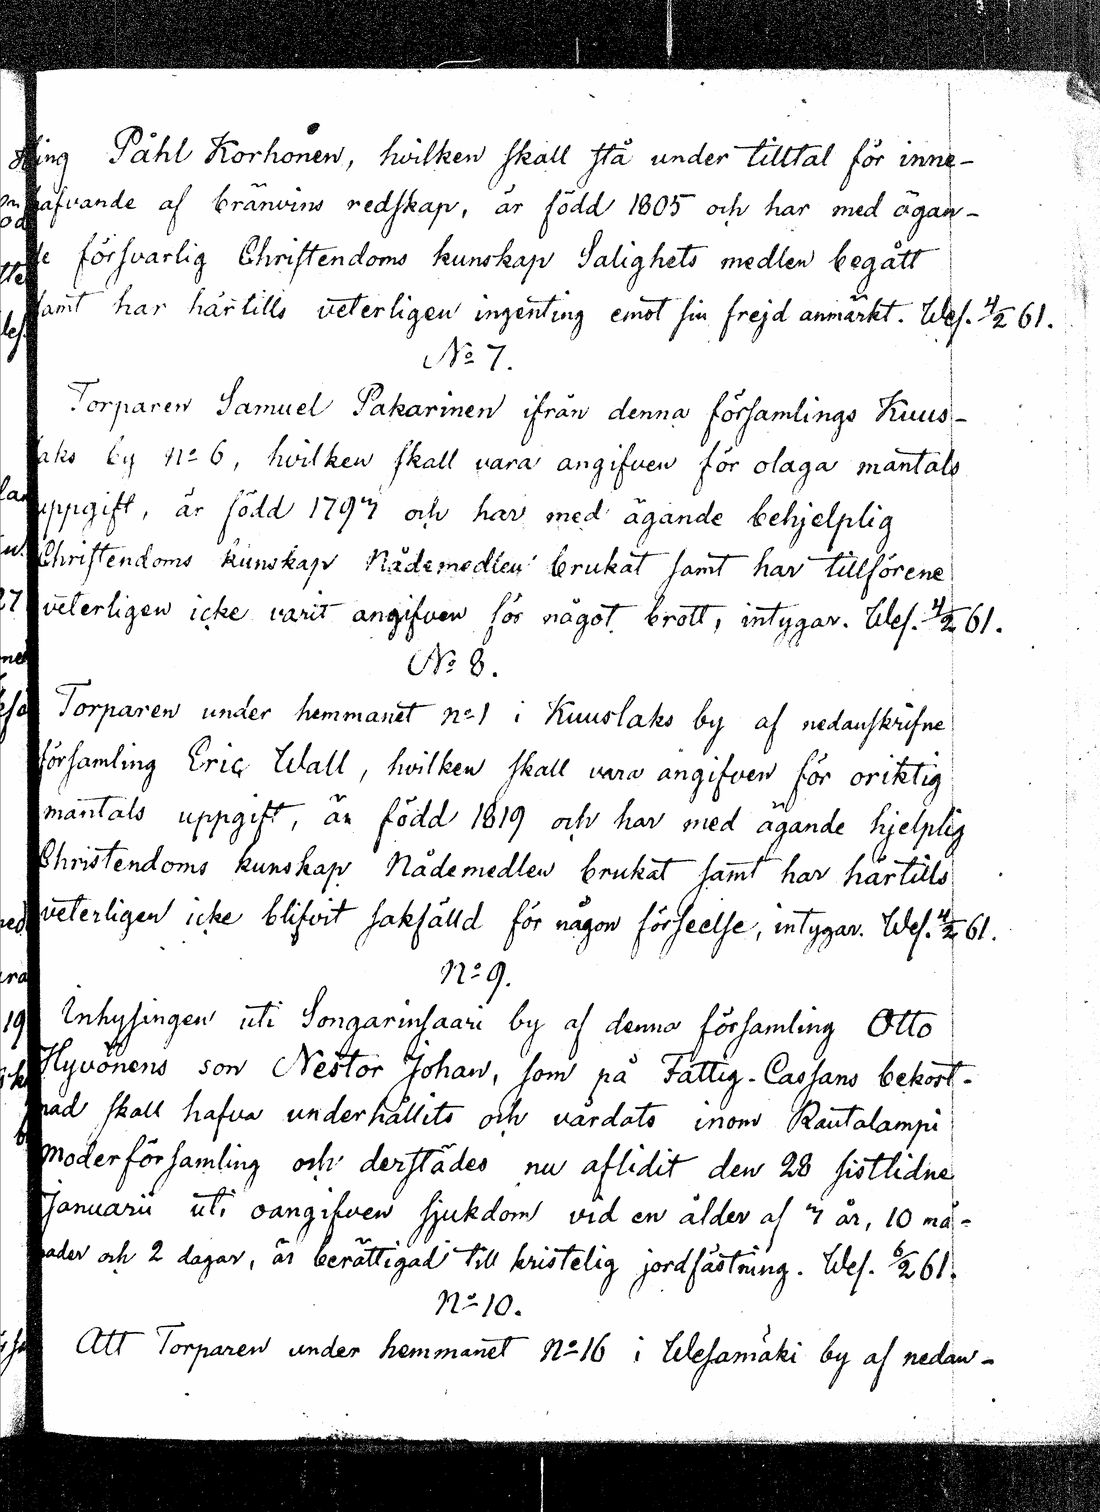 ing Påhl Korhonen, hvilken skall stå under tilltal för inne-
hafvande af bränvins redskap, är född 1805 och har med ägan-
de försvarlig Christendoms kunskap Salighets medlen begått
samt har härtills veterligen ingenting emot sin frejd anmärkt. Wes. 4/2 61.
No 7.
Torparen Samuel Pakarinen ifrån denna församlings Kuus-
laks by No 6, hvilken skall vara angifven för olaga mantals
uppgift, är född 1797 och har med ägande behjelplig
Christendoms kunskap Nådemedlen brukat samt har tillförene
veterligen icke varit angifven för något brott, intygar. Wes. 4/2 61.
No 8.
Torparen under hemmanet No 1 i Kuuslaks by af nedanskrifne
församling Eric Wall, hvilken skall vara angifven för oriktig
mantals uppgift, är född 1819 och har med ägande hjelplig
Christendoms kunskap Nådemedlen brukat samt har härtills
veterligen icke blifvit sakfälld för någon förseelse, intygar. Wes. 4/2 61.
No 9.
Inhysingen uti Songarinsaari by af denna församling Otto
Hyvönens son Nestor Johan, som på Fattig-Cassans bekost-
nad skall hafva underhållits och vårdats inom Rautalampi
Moderförsamling och derstädes nu aflidit den 28 sistlidne
Januarii uti oangifven sjukdom vid en ålder af 7 år, 10 må-
nader och 2 dagar, är berättigad till kristelig jordfästning. Wes. 6/2 61.
No 10.
Att Torparen under hemmanet No 16 i Wesamäki by af nedan-